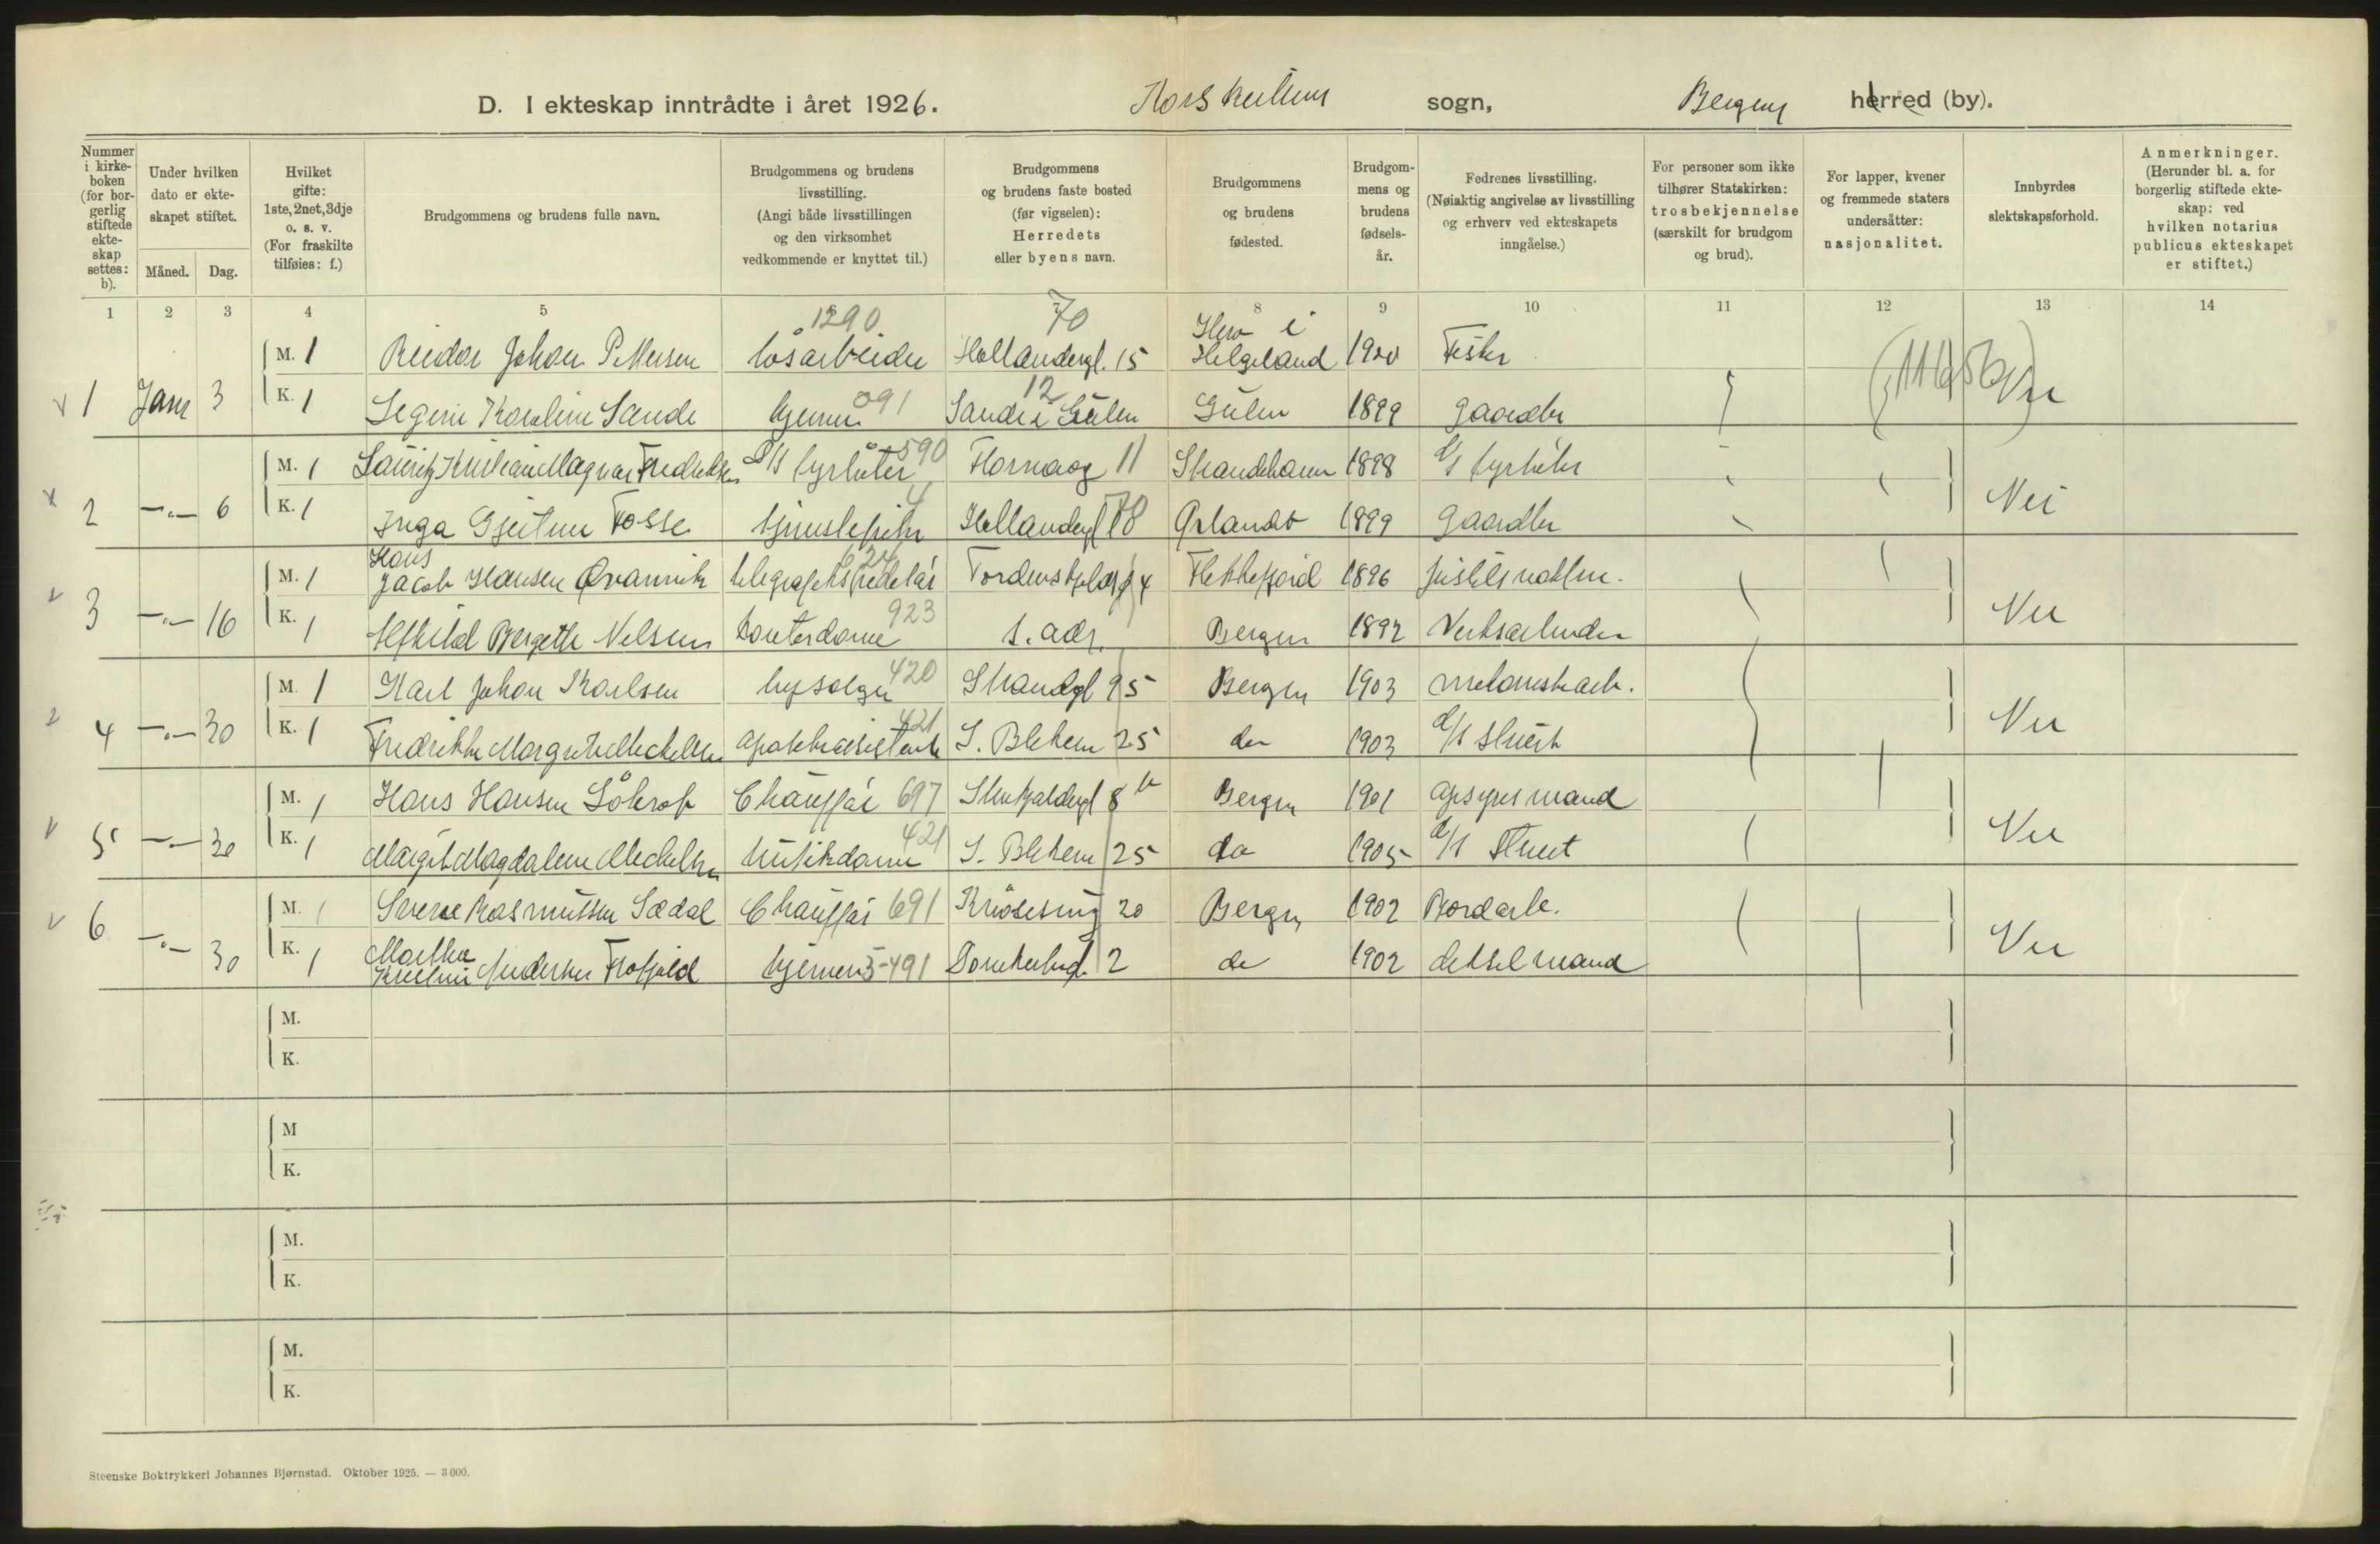 D. I ekteskap inntrådte i året 1926. Korskirkens sogn, Bergens herred (by).
Nummer i kirke-boken (for bor-gerlig stiftede ekte-skap settes: b).
Under hvilken dato er ekte-skapet stiftet.
Måned. Dag.
Hvilket gifte: 1ste, 2net, 3dje o. s. v. (For fraskilte tilføies: f.)
Brudgommens og brudens fulle navn.
Brudgommens og brudens livsstilling. (Angi både livsstillingen og den virksomhet vedkommende er knyttet til.)
Brudgommens og brudens faste bosted (før vigselen): Herredets eller byens navn.
Brudgommens og brudens fødested.
Brudgom-mens og brudens fødsels-år.
Fedrenes livsstilling. (Nøiaktig angivelse av livsstilling og erhverv ved ekteskapets inngåelse.)
For personer som ikke tilhører Statskirken: trosbekjennelse (særskilt for brudgom og brud).
For lapper, kvener og fremmede staters undersåtter: nasjonalitet.
Innbyrdes slektskapsforhold.
Anmerkninger. (Herunder bl. a. for borgerlig stiftede ekte-skap: ved hvilken notarius publicus ekteskapet er stiftet.)
1 2 3 4 5 8 9 10 11 12 13 14
1290 70
M. 1 Reidar Johan Pettersen løsarbeider Hollendergt. 15 Herø i Helgeland 1900 Fisker
1 Jan 3 K. 1 Segerie Karoline Sande hjemme 091 Sande i Gulen 12 Gulen 1899 gaardbr Nei
M. 1 Lauritz Kristian Magnar Fredriksen D/S fyrbøter 590 Florvaag 11 1898 D/S fyrbøter
2 —"— 6 K. 1 Inga Gjertine Fosse tjenestepike 4 Hollendergt 18 Ørlandet 1899 Gaardbr Nei
M. 1 Hans Jacob Hansen Qvannvik telegrafekspeditør Tordenskjoldsgt 4 Flekkefjord 1896
3 —"— 16 K. 1 Alfhild Bergette Nelsen kontordame 923 s. adr. Bergen 1892 Verksarbeider Nei
M. 1 Karl Johan Karlsen 420 Strandgt 95 Bergen 1903
4 —"— 30 K. 1 Fredrikke Margrethe Mechelsen apotekassistent 421 S. Blekevn 25 do 1903 d/s Stuert Nei
M. 1 Hans Hansen Chauffør 697 8 b Bergen 1901 opsynsmand
5 —"— 30 K. 1 Margit Magdalene Mechelsen butikdame 421 S. Blekevn 25 do 1905 d/s Stuert Nei
M. 1 Sverre Rasmussen Sædal Chauffør 691 20 Bergen 1902 Bordarb.
6 —"— 30 K. 1 Marthe Kristine Andersen hjemme 5-491 2 do 1902 Nei
M.
K.
M
K.
M.
K.
M.
K.
Steenske Boktrykkeri Johannes Bjørnstad. Oktober 1925. — 3 000.